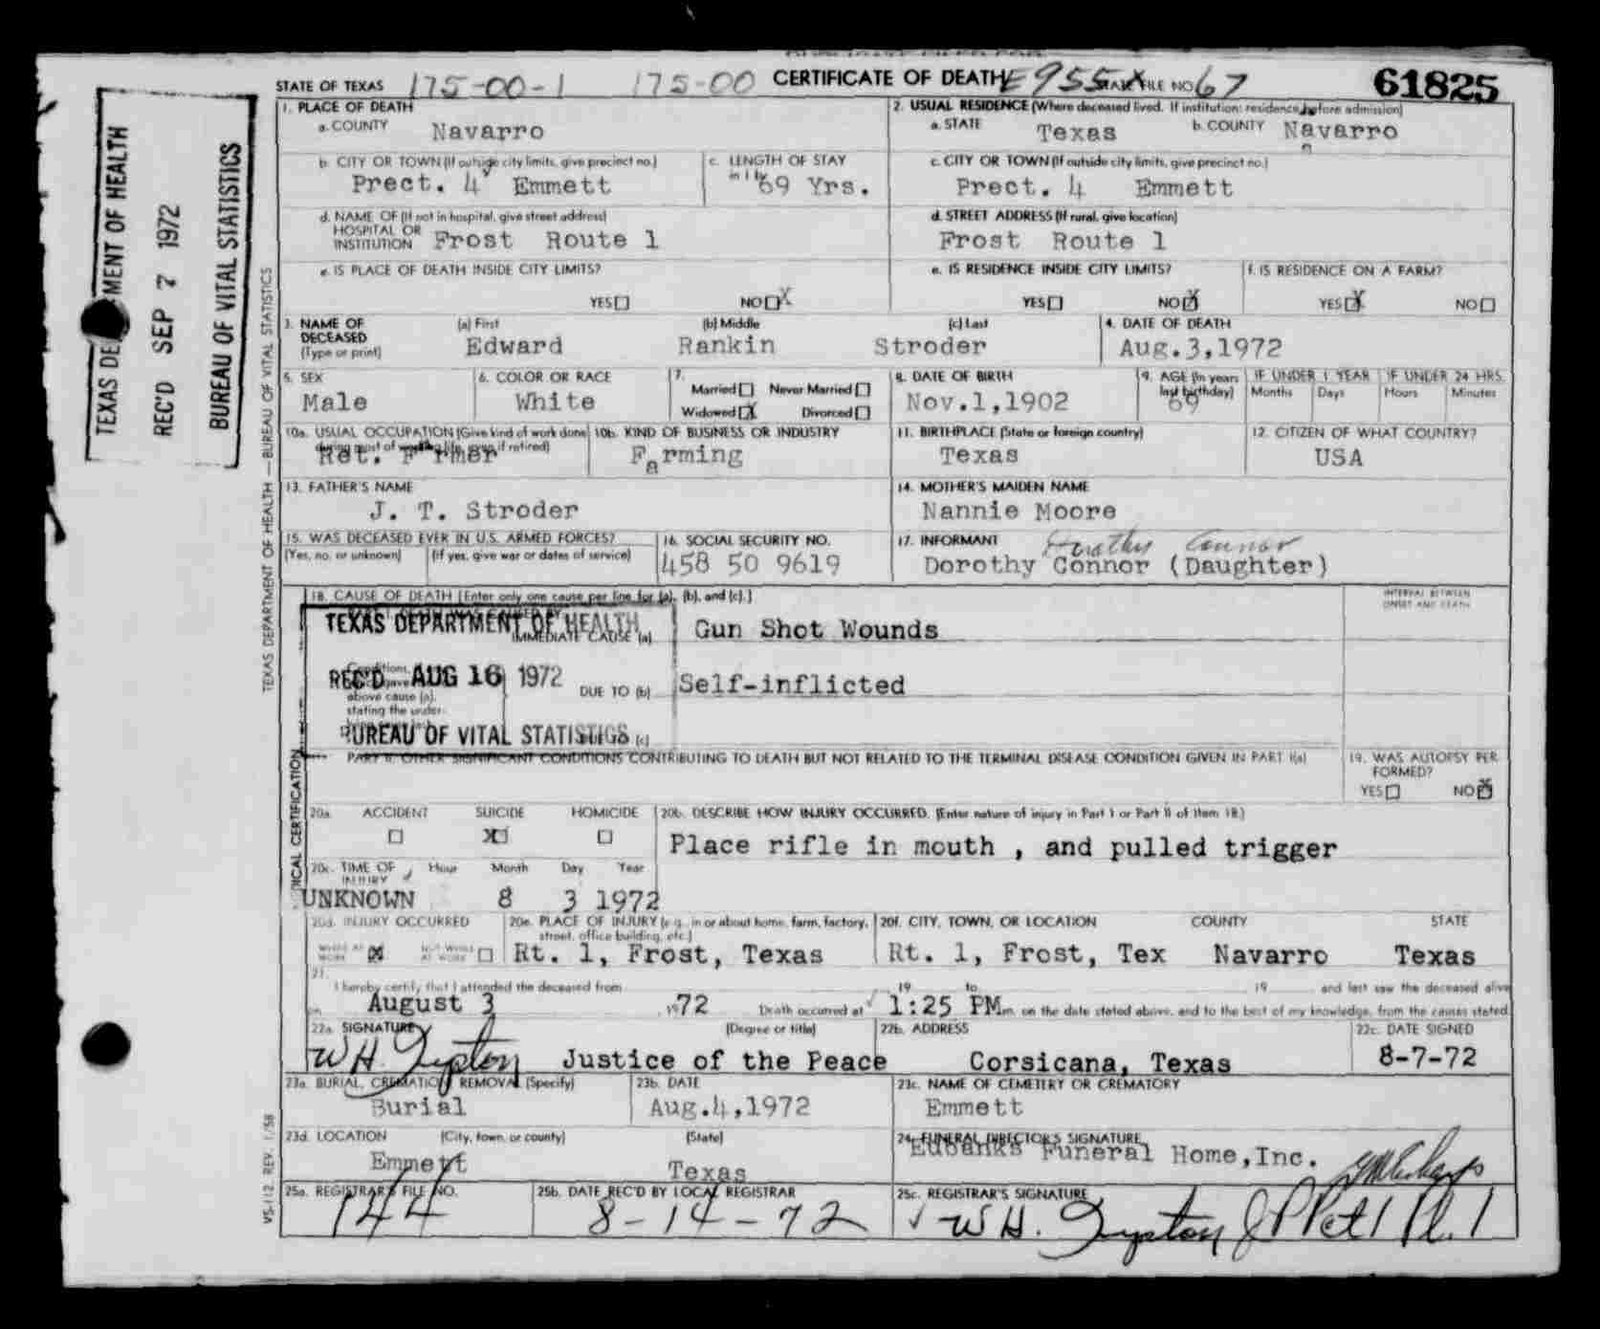 STATE OF TEXAS 175-00-1 175-00 CERTIFICATE OF DEATH E955X FILE NO. 67 61825
1. PLACE OF DEATH
a. COUNTY Navarro
2. USUAL RESIDENCE (Where deceased lived. If institution: residence before admission)
a. STATE Texas b. COUNTY Navarro
b. CITY OR TOWN (If outside city limits, give precinct no.) Prect. 4 Emmett
c. LENGTH OF STAY in 1 b. 69 Yrs.
c. CITY OR TOWN (If outside city limits, give precinct no.) Prect. 4 Emmett
d. NAME OF (If not in hospital, give street address) HOSPITAL OR INSTITUTION Frost Route 1
d. STREET ADDRESS (If rural, give location) Frost Route 1
e. IS PLACE OF DEATH INSIDE CITY LIMITS? YES NO X
e. IS RESIDENCE INSIDE CITY LIMITS? YES NO X
f. IS RESIDENCE ON A FARM? YES X NO
3. NAME OF DECEASED (Type or print) (a) First Edward (b) Middle Rankin (c) Last Stroder
4. DATE OF DEATH Aug.3,1972
5. SEX Male
6. COLOR OR RACE White
7. Married Never Married Widowed X Divorced
8. DATE OF BIRTH Nov.1,1902
9. AGE (In years last birthday) 69 IF UNDER 1 YEAR Months Days IF UNDER 24 HRS. Hours Minutes
10a. USUAL OCCUPATION (Give kind of work done during most of working life, even if retired) Ret. F rmer
10b. KIND OF BUSINESS OR INDUSTRY Farming
11. BIRTHPLACE (State or foreign country) Texas
12. CITIZEN OF WHAT COUNTRY? USA
13. FATHER'S NAME J. T. Stroder
14. MOTHER'S MAIDEN NAME Nannie Moore
15. WAS DECEASED EVER IN U.S. ARMED FORCES? (Yes, no, or unknown) (If yes, give war or dates of service)
16. SOCIAL SECURITY NO. 458 50 9619
17. INFORMANT Dorothy Connor
Dorothy Connor (Daughter)
18. CAUSE OF DEATH [Enter only one cause per line for (a), (b), and (c).]
INTERVAL BETWEEN ONSET AND DEATH
IMMEDIATE CAUSE (a) Gun Shot Wounds
above cause (a), stating the under-
DUE TO (b) Self-inflicted
(c)
TEXAS DEPARTMENT OF HEALTH
REC'D AUG 16 1972
BUREAU OF VITAL STATISTICS
PART II. OTHER SIGNIFICANT CONDITIONS CONTRIBUTING TO DEATH BUT NOT RELATED TO THE TERMINAL DISEASE CONDITION GIVEN IN PART I(a)
19. WAS AUTOPSY PERFORMED? YES NO X
20a. ACCIDENT SUICIDE X HOMICIDE
20b. DESCRIBE HOW INJURY OCCURRED. (Enter nature of injury in Part I or Part II of item 18.)
Place rifle in mouth , and pulled trigger
20c. TIME OF INJURY Hour Month Day Year
UNKNOWN 8 3 1972
20d. INJURY OCCURRED WHILE AT WORK X NOT WHILE AT WORK
20e. PLACE OF INJURY (e.g., in or about home, farm, factory, street, office building, etc.) Rt. 1, Frost, Texas
20f. CITY, TOWN, OR LOCATION COUNTY STATE
Rt. 1, Frost, Tex Navarro Texas
21. I hereby certify that I attended the deceased from 19 to 19 and last saw the deceased alive
on August 3 1972 Death occurred at 1:25 PM m. on the date stated above, and to the best of my knowledge, from the causes stated.
22a. SIGNATURE (Degree or title) W H. Tipton Justice of the Peace
22b. ADDRESS Corsicana, Texas
22c. DATE SIGNED 8-7-72
23a. BURIAL, CREMATION, REMOVAL (Specify) Burial
23b. DATE Aug.4,1972
23c. NAME OF CEMETERY OR CREMATORY Emmett
23d. LOCATION (City, town, or county) (State)
Emmett Texas
24. FUNERAL DIRECTOR'S SIGNATURE Eubanks Funeral Home,Inc.
25a. REGISTRAR'S FILE NO. 144
25b. DATE REC'D BY LOCAL REGISTRAR 8-14-72
25c. REGISTRAR'S SIGNATURE W H. Tipton
TEXAS DEPARTMENT OF HEALTH
REC'D SEP 7 1972
BUREAU OF VITAL STATISTICS
TEXAS DEPARTMENT OF HEALTH — BUREAU OF VITAL STATISTICS
MEDICAL CERTIFICATION
VS-112 REV. 1/58